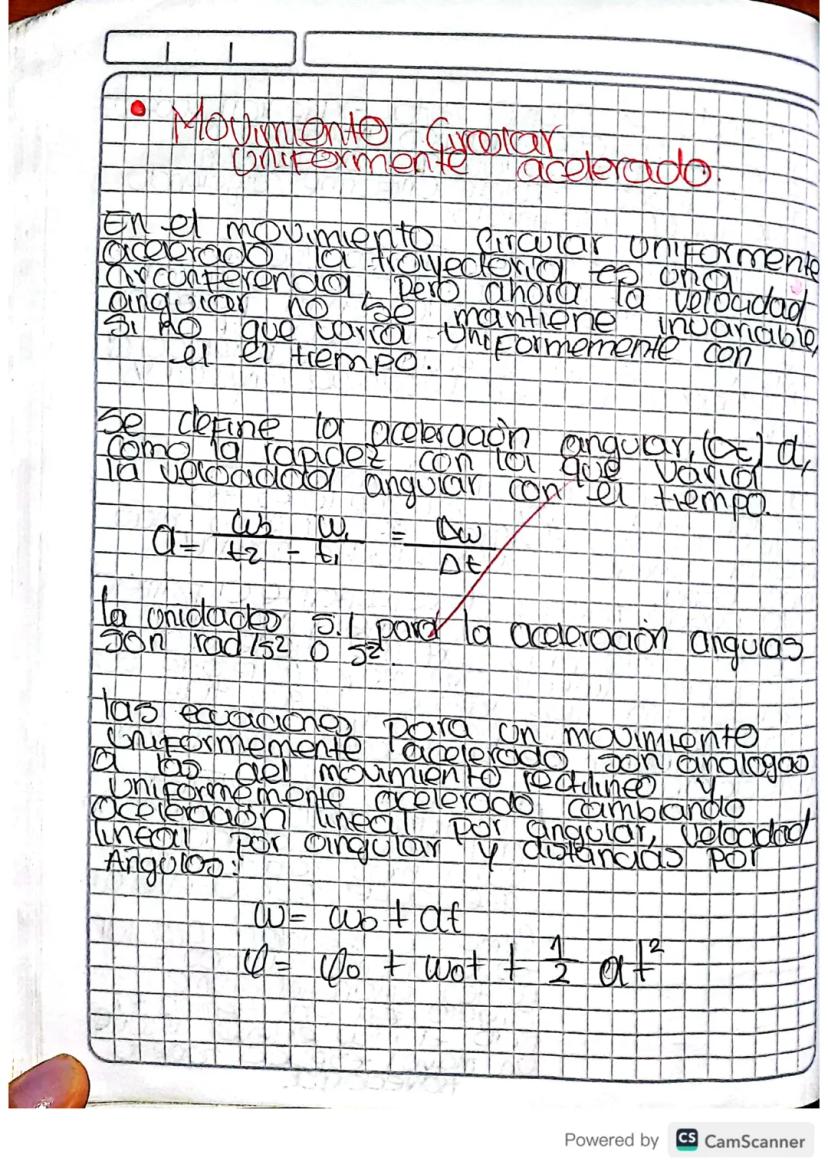 • Movimiento Circular
Uniformente acelerado.
En el movimiento Circular Uniformente
acelerado la trayectoria es una
circunferencia, pero ahora la velocidad
angular no se mantiene invariable,
Si no que varia Uniformemente con
el el tiempo.
Se define la aceleración angular, (α) a,
como la rapidez con la que varia
la velocidad angular con el tiempo.
a = ω2 ω1 / t2 - t1 = Δω / Δt
la unidades S.I para la aceleración angulas
son rad/s2 o s2.
las ecuaciones para un movimiento
Uniformemente acelerado son analogas
a las del movimiento rectilineo y
Uniformemente acelerado cambiando
aceleración lineal por angular, velocidad
lineal por angular y distancias por
Angulos:
ω = ω0 + at
φ = φ0 + ω0t + 1/2 at²
Powered by CS CamScanner